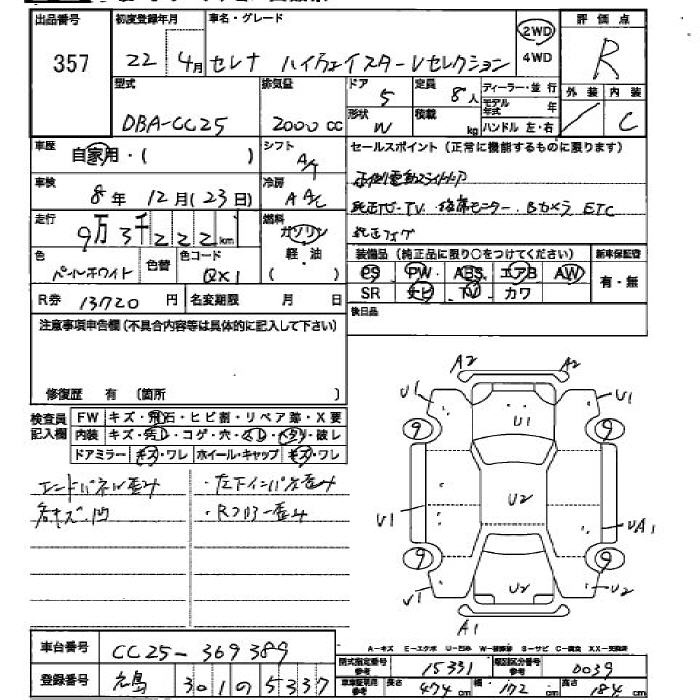 出品番号 初度登録年月 車名・グレード 2WD 評価点
357 22年 4月 セレナ ハイウェイスターVセレクション 4WD R
型式 排気量 ドア 定員 ディーラー・並行 外装 内装
DBA-CC25 2000cc 5 8人 モデル年式 年 / C
形状 W 積載 kg ハンドル 左・右
車歴 自家用・( ) シフト A/T セールスポイント(正常に機能するものに限ります)
車検 8年 12月(23日) 冷房 AAC 両側電動スライドドア
走行 9万3千222km 燃料 ガソリン 純正ナビ・TV 後席モニター・Bカメラ ETC
軽・油 ( ) 純正フォグ
色 パールホワイト 色替 色コード QX1 装備品(純正品に限り○をつけてください) 新車保証書
PS PW ABS エアB AW 有・無
R券 13720円 名変期限 月 日 SR ナビ TV カワ
注意事項申告欄(不具合内容等は具体的に記入して下さい) 後日品
修復歴 有(箇所 )
検査員記入欄 FW キズ・飛石・ヒビ割・リペア跡・X要
内装 キズ・汚レ・コゲ・穴・スレ・ヘタリ・破レ
ドアミラー キズ・ワレ ホイール・キャップ キズ・ワレ
エンドパネル歪み ・左下インパネ歪み
各キズ・凹 ・Rフロアー歪み
A2 A2
U1 U1 U1
9 9
U1 U2 UA1
9 9
U1 U2 U2
A1
A-キズ E-エクボ U-凹み W-補修跡 S-サビ C-腐食 XX-交換済
車台番号 CC25-369389
型式指定番号 参考 15331 類別区分番号 参考 0039
登録番号 301 の 5337
車検証専用 参考 長さ 474cm 幅 172cm 高さ 184cm